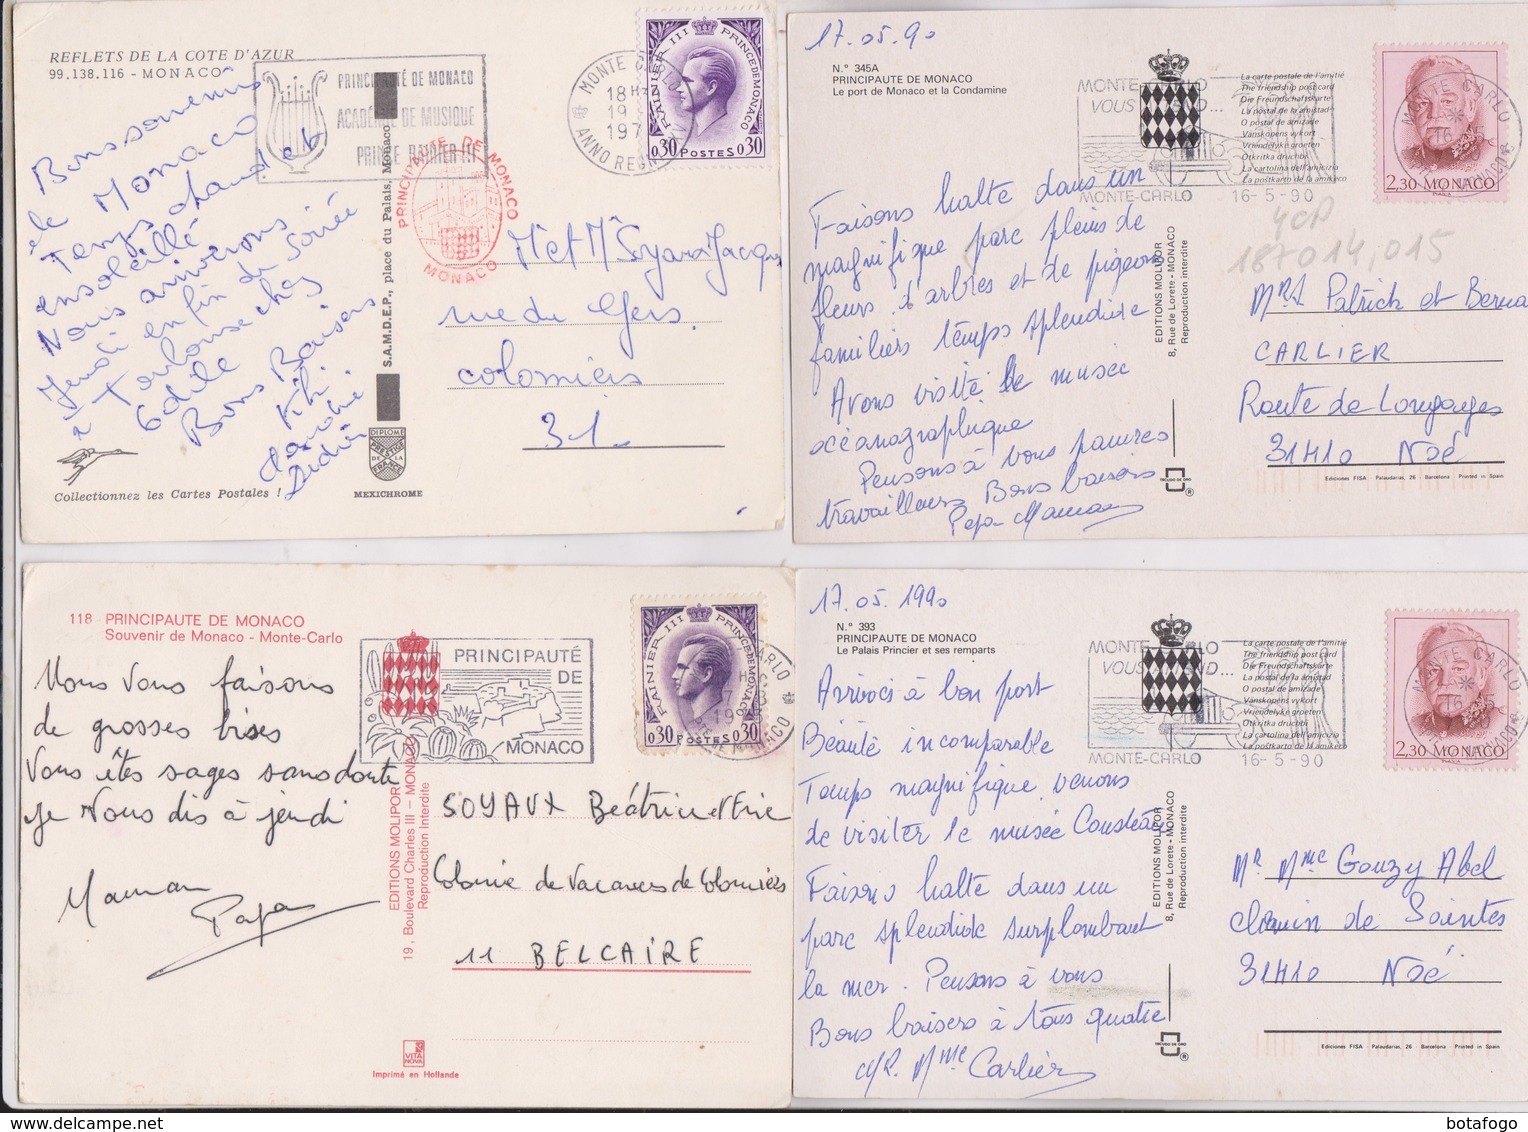 REFLETS DE LA COTE D'AZUR
99.138.116 - MONACO
PRINCIPAUTÉ DE MONACO
ACADÉMIE DE MUSIQUE
PRINCE RAINIER III
MONTE CARLO
18 H
19
197
ANNO REGN
RAINIER III PRINCE DE MONACO
0,30 POSTES 0,30
PRINCIPAUTE DE MONACO
MONACO
Bons souvenirs
de Monaco
Temps chaud et
ensoleillé
Nous arriverons
Jeudi en fin de soirée
à Toulouse chez
Odile
Bons Baisers
Kiki
Claudie
Didier
rue du Gers
colomiers
31
S.A.M.D.E.P., place du Palais, Monaco
DIPLOME
PRESTIGE
DE LA
FRANCE
MEXICHROME
Collectionnez les Cartes Postales !
17.05.90
N.° 345A
PRINCIPAUTE DE MONACO
Le port de Monaco et la Condamine
MONTE-CARLO
VOUS
MONTE-CARLO
16-5-90
La carte postale de l'amitié
The friendship post card
Die Freundschaftskarte
La postal de la amistad
O postal de amizade
Vänskapens vykort
Vriendelyke groeten
Otkritka druchbi
La cartolina dell'amicizia
La postkarto de la amikeco
MONTE CARLO
2,30 MONACO
4CP
187014,015
Faisons halte dans un
magnifique parc pleins de
fleurs d'arbres et de pigeons
familiers temps splendide
Avons visité le musée
océanographique
Pensons à vous pauvres
travailleurs Bons baisers
Papa Maman
EDITIONS MOLIPOR
8, Rue de Lorete - MONACO
Reproduction interdite
Mrs Patrick et Berna
CARLIER
Route de Longages
31410 Noé
Ediciones FISA - Palaudarias, 26 - Barcelona Printed in Spain
118 PRINCIPAUTE DE MONACO
Souvenir de Monaco - Monte-Carlo
PRINCIPAUTÉ
DE
MONACO
RAINIER III PRINCE DE MONACO
0,30 POSTES 0,30
Nous vous faisons
de grosses bises
Vous êtes sages sans doute
Je Nous dis à jeudi
Maman
Papa
EDITIONS MOLIPOR
19, Boulevard Charles III - MONACO
Reproduction interdite
SOYAUX Béatrice et Eric
Colonie de Vacances de Colomiers
11 BELCAIRE
VITA
NOVA
Imprimé en Hollande
17.05.1990
N.° 393
PRINCIPAUTE DE MONACO
Le Palais Princier et ses remparts
MONTE-CARLO
VOUS
MONTE-CARLO
16-5-90
La carte postale de l'amitié
The friendship post card
Die Freundschaftskarte
La postal de la amistad
O postal de amizade
Vänskapens vykort
Vriendelyke groeten
Otkritka druchbi
La cartolina dell'amicizia
La postkarto de la amikeco
MONTE CARLO
2,30 MONACO
Arrivés à bon port
Beauté incomparable
Temps magnifique, venons
de visiter le musée Cousteau
Faisons halte dans un
parc splendide surplombant
la mer. Pensons à vous
Bons baisers à tous quatre
Mr. Mme Carlier
EDITIONS MOLIPOR
8, Rue de Lorete - MONACO
Reproduction interdite
Mr Mme Gouzy Abel
chemin de Saintes
31410 Noé
Ediciones FISA - Palaudarias, 26 - Barcelona Printed in Spain
botafogo